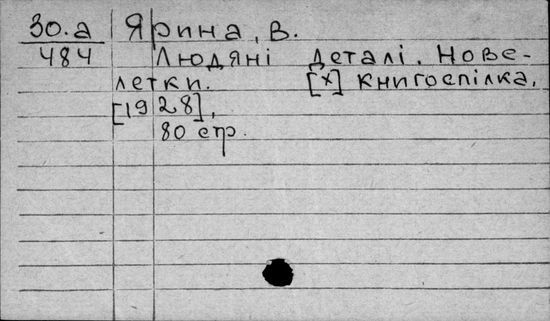 30.а Ярина, В.
484 Людяні деталі. Нове-
летки. [х] Книгоспілка,
[1928],
80 стр.